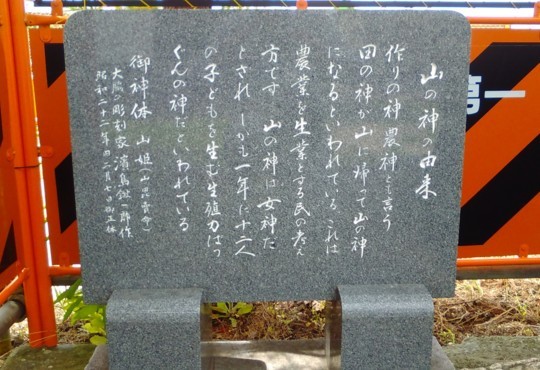 山の神の由来
作りの神 農神とも言う
田の神が山に帰って山の神
になるといわれている これは
農業を生業とする民の考え
方です 山の神は女神だ
とされ しかも一年に十二人
の子どもを生む生殖力ばつ
ぐんの神だといわれている
御神体 山姫(山毘賣命)
大鰐の彫刻家 濱島鉦三郎作
昭和二十二年四月七日改立体
第一